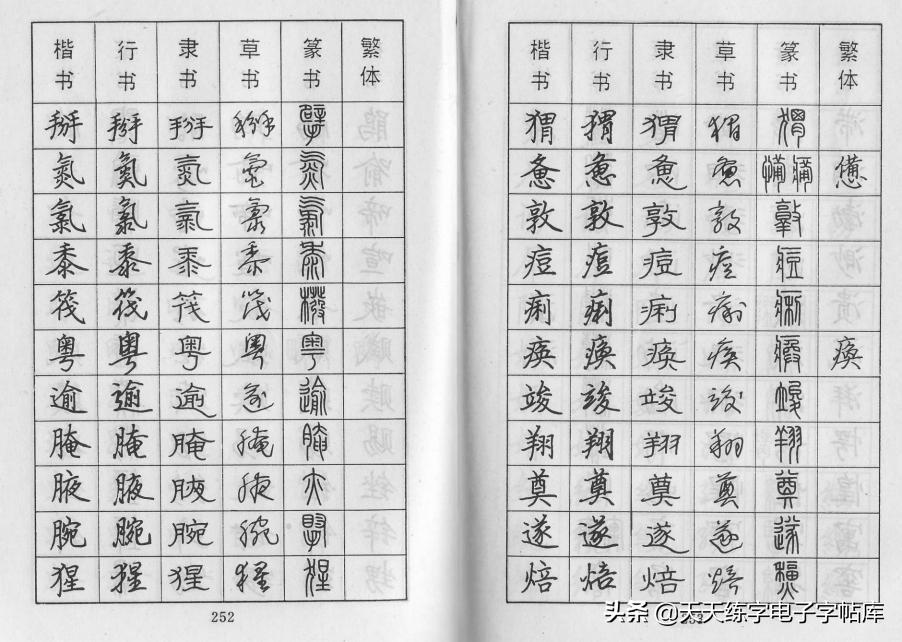 楷书 行书 隶书 草书 篆书 繁体
掰 掰 掰 掰 掰
氮 氮 氮 氮 氮
氯 氯 氯 氯 氯
黍 黍 黍 黍 黍
筏 筏 筏 筏 橃
粤 粤 粤 粤 粤
逾 逾 逾 逾 逾
腌 腌 腌 腌 腌
腋 腋 腋 腋 亦
腕 腕 腕 腕
猩 猩 猩 猩 猩
252
楷书 行书 隶书 草书 篆书 繁体
猬 猬 猬 猬 猬
惫 惫 惫 惫 憊
敦 敦 敦 敦 敦
痘 痘 痘 痘 痘
痢 痢 痢 痢 痢
痪 痪 痪 痪 瘓
竣 竣 竣 竣 竣
翔 翔 翔 翔 翔
奠 奠 奠 奠 奠
遂 遂 遂 遂 遂
焙 焙 焙 焙
头条 @天天练字电子字帖库